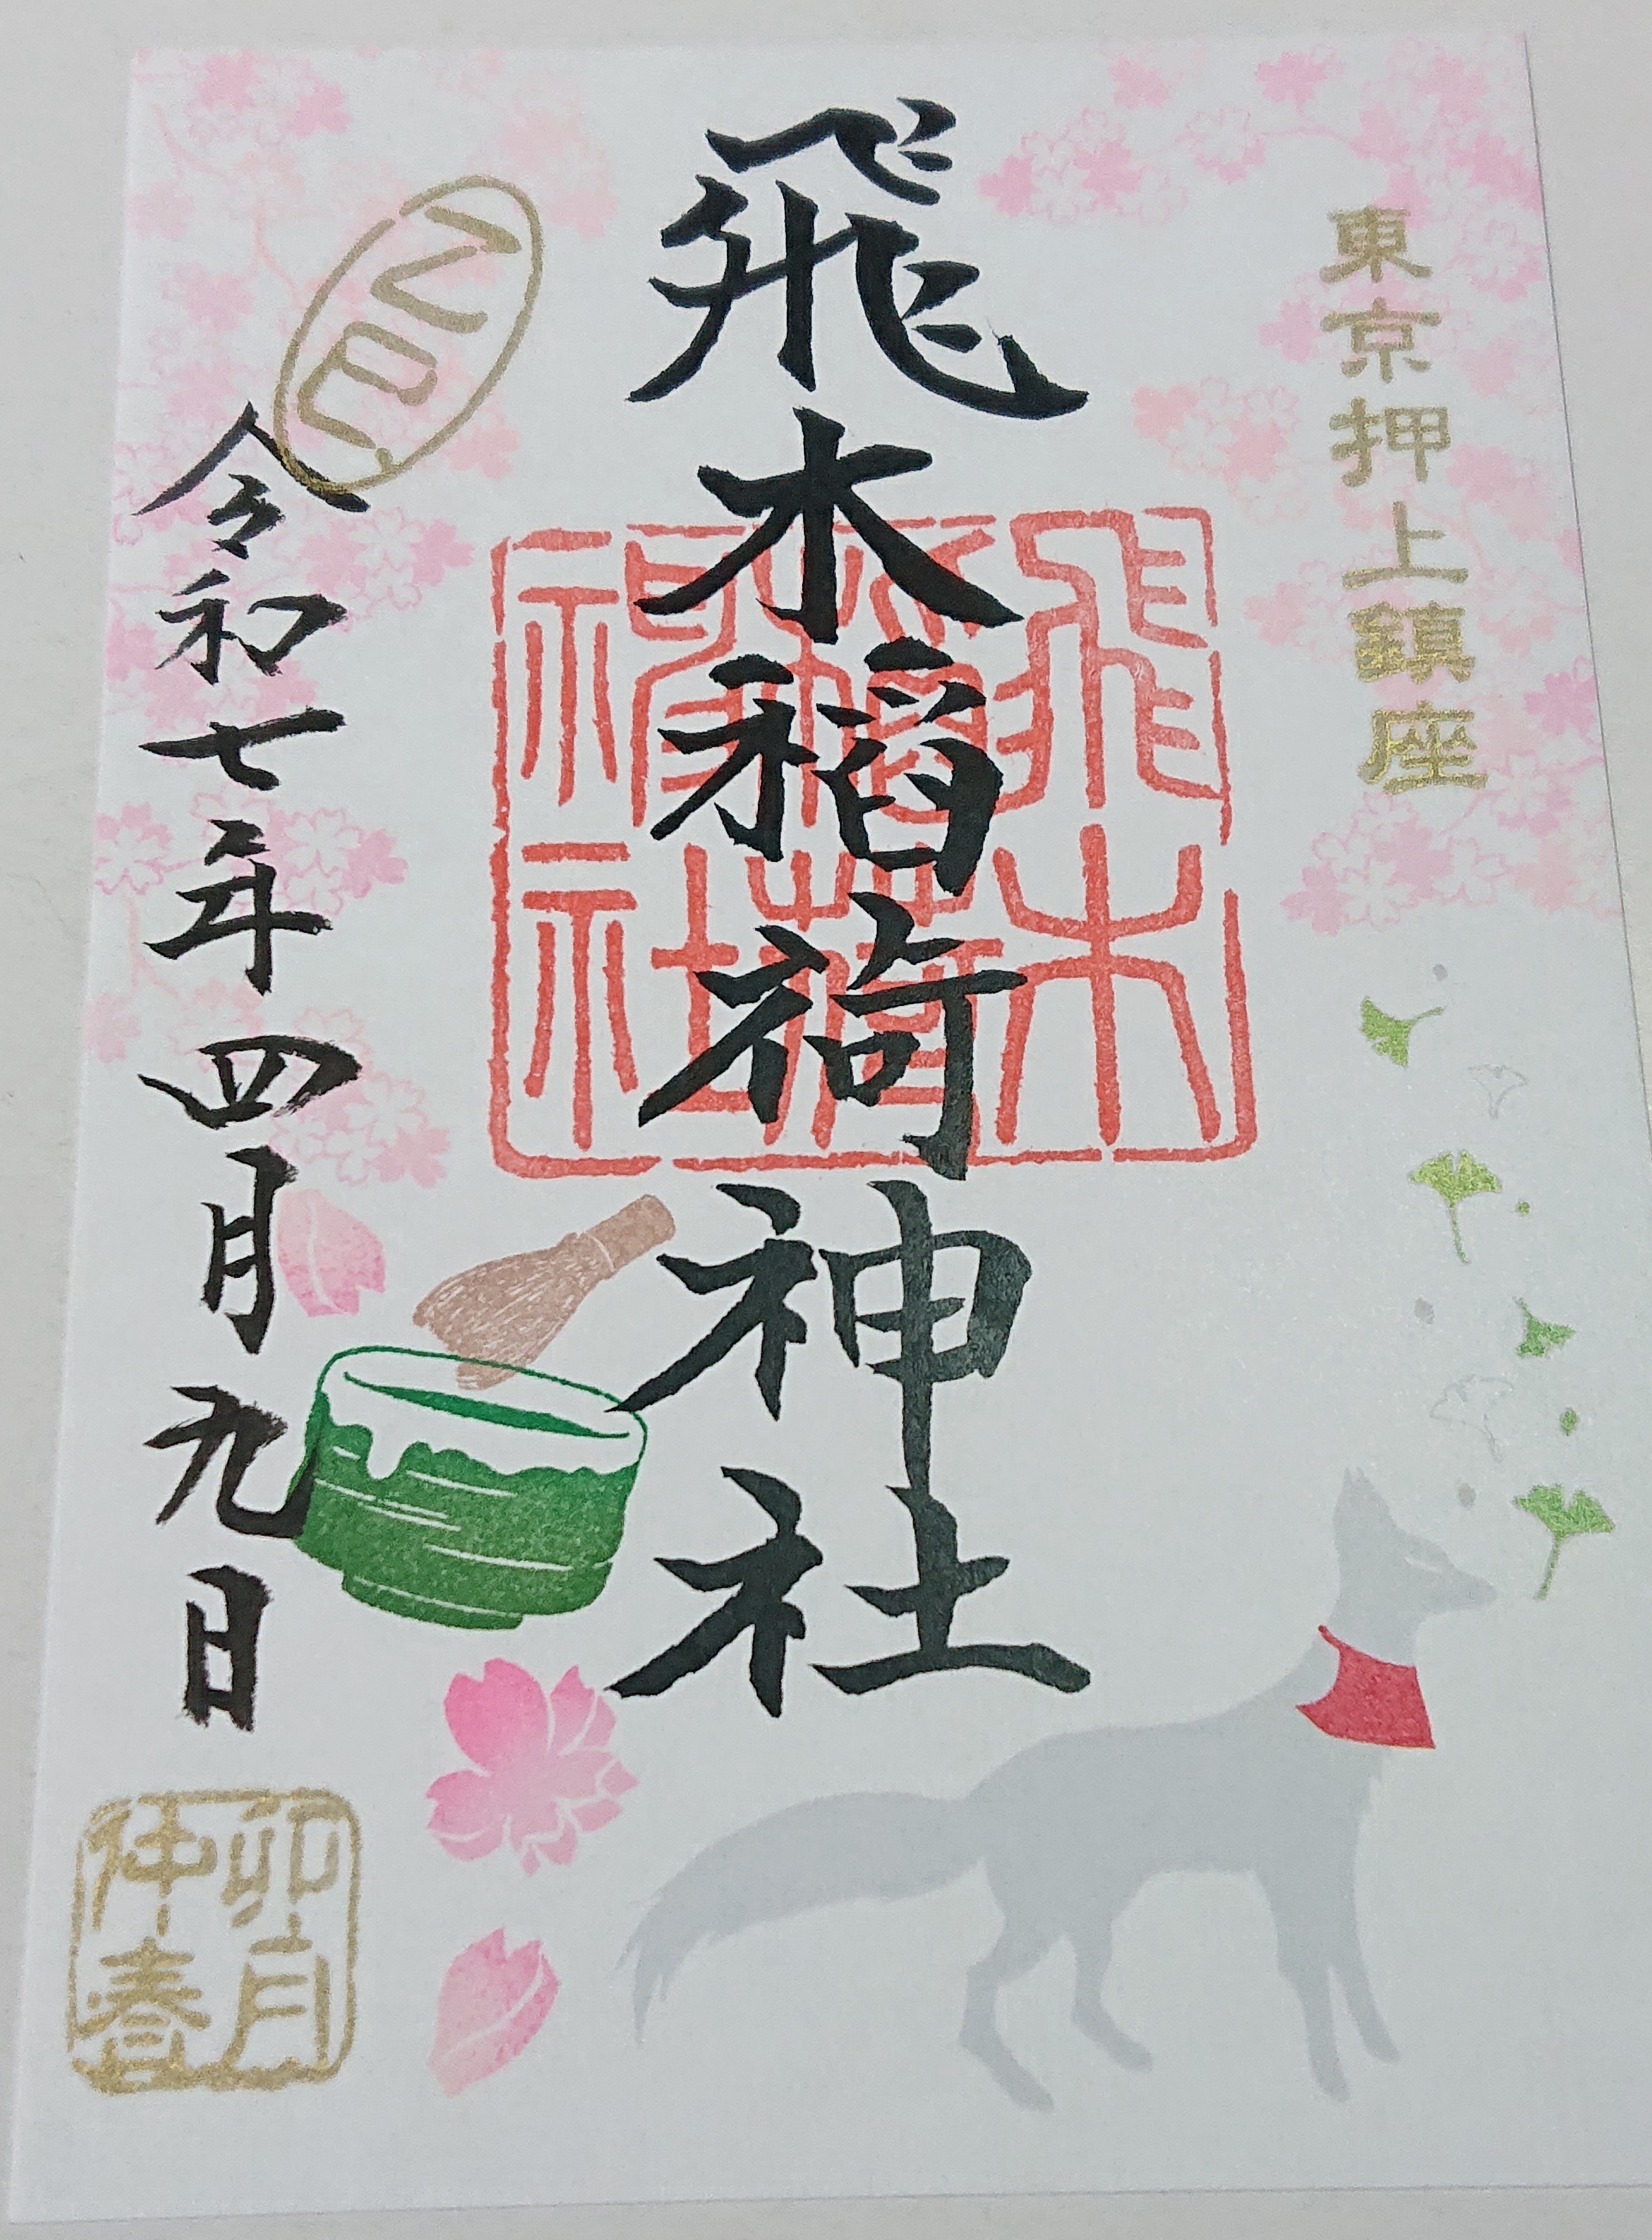 東京押上鎮座
飛木稲荷神社
飛木
稲荷
神社
乙巳
令和七年四月九日
卯月
仲春